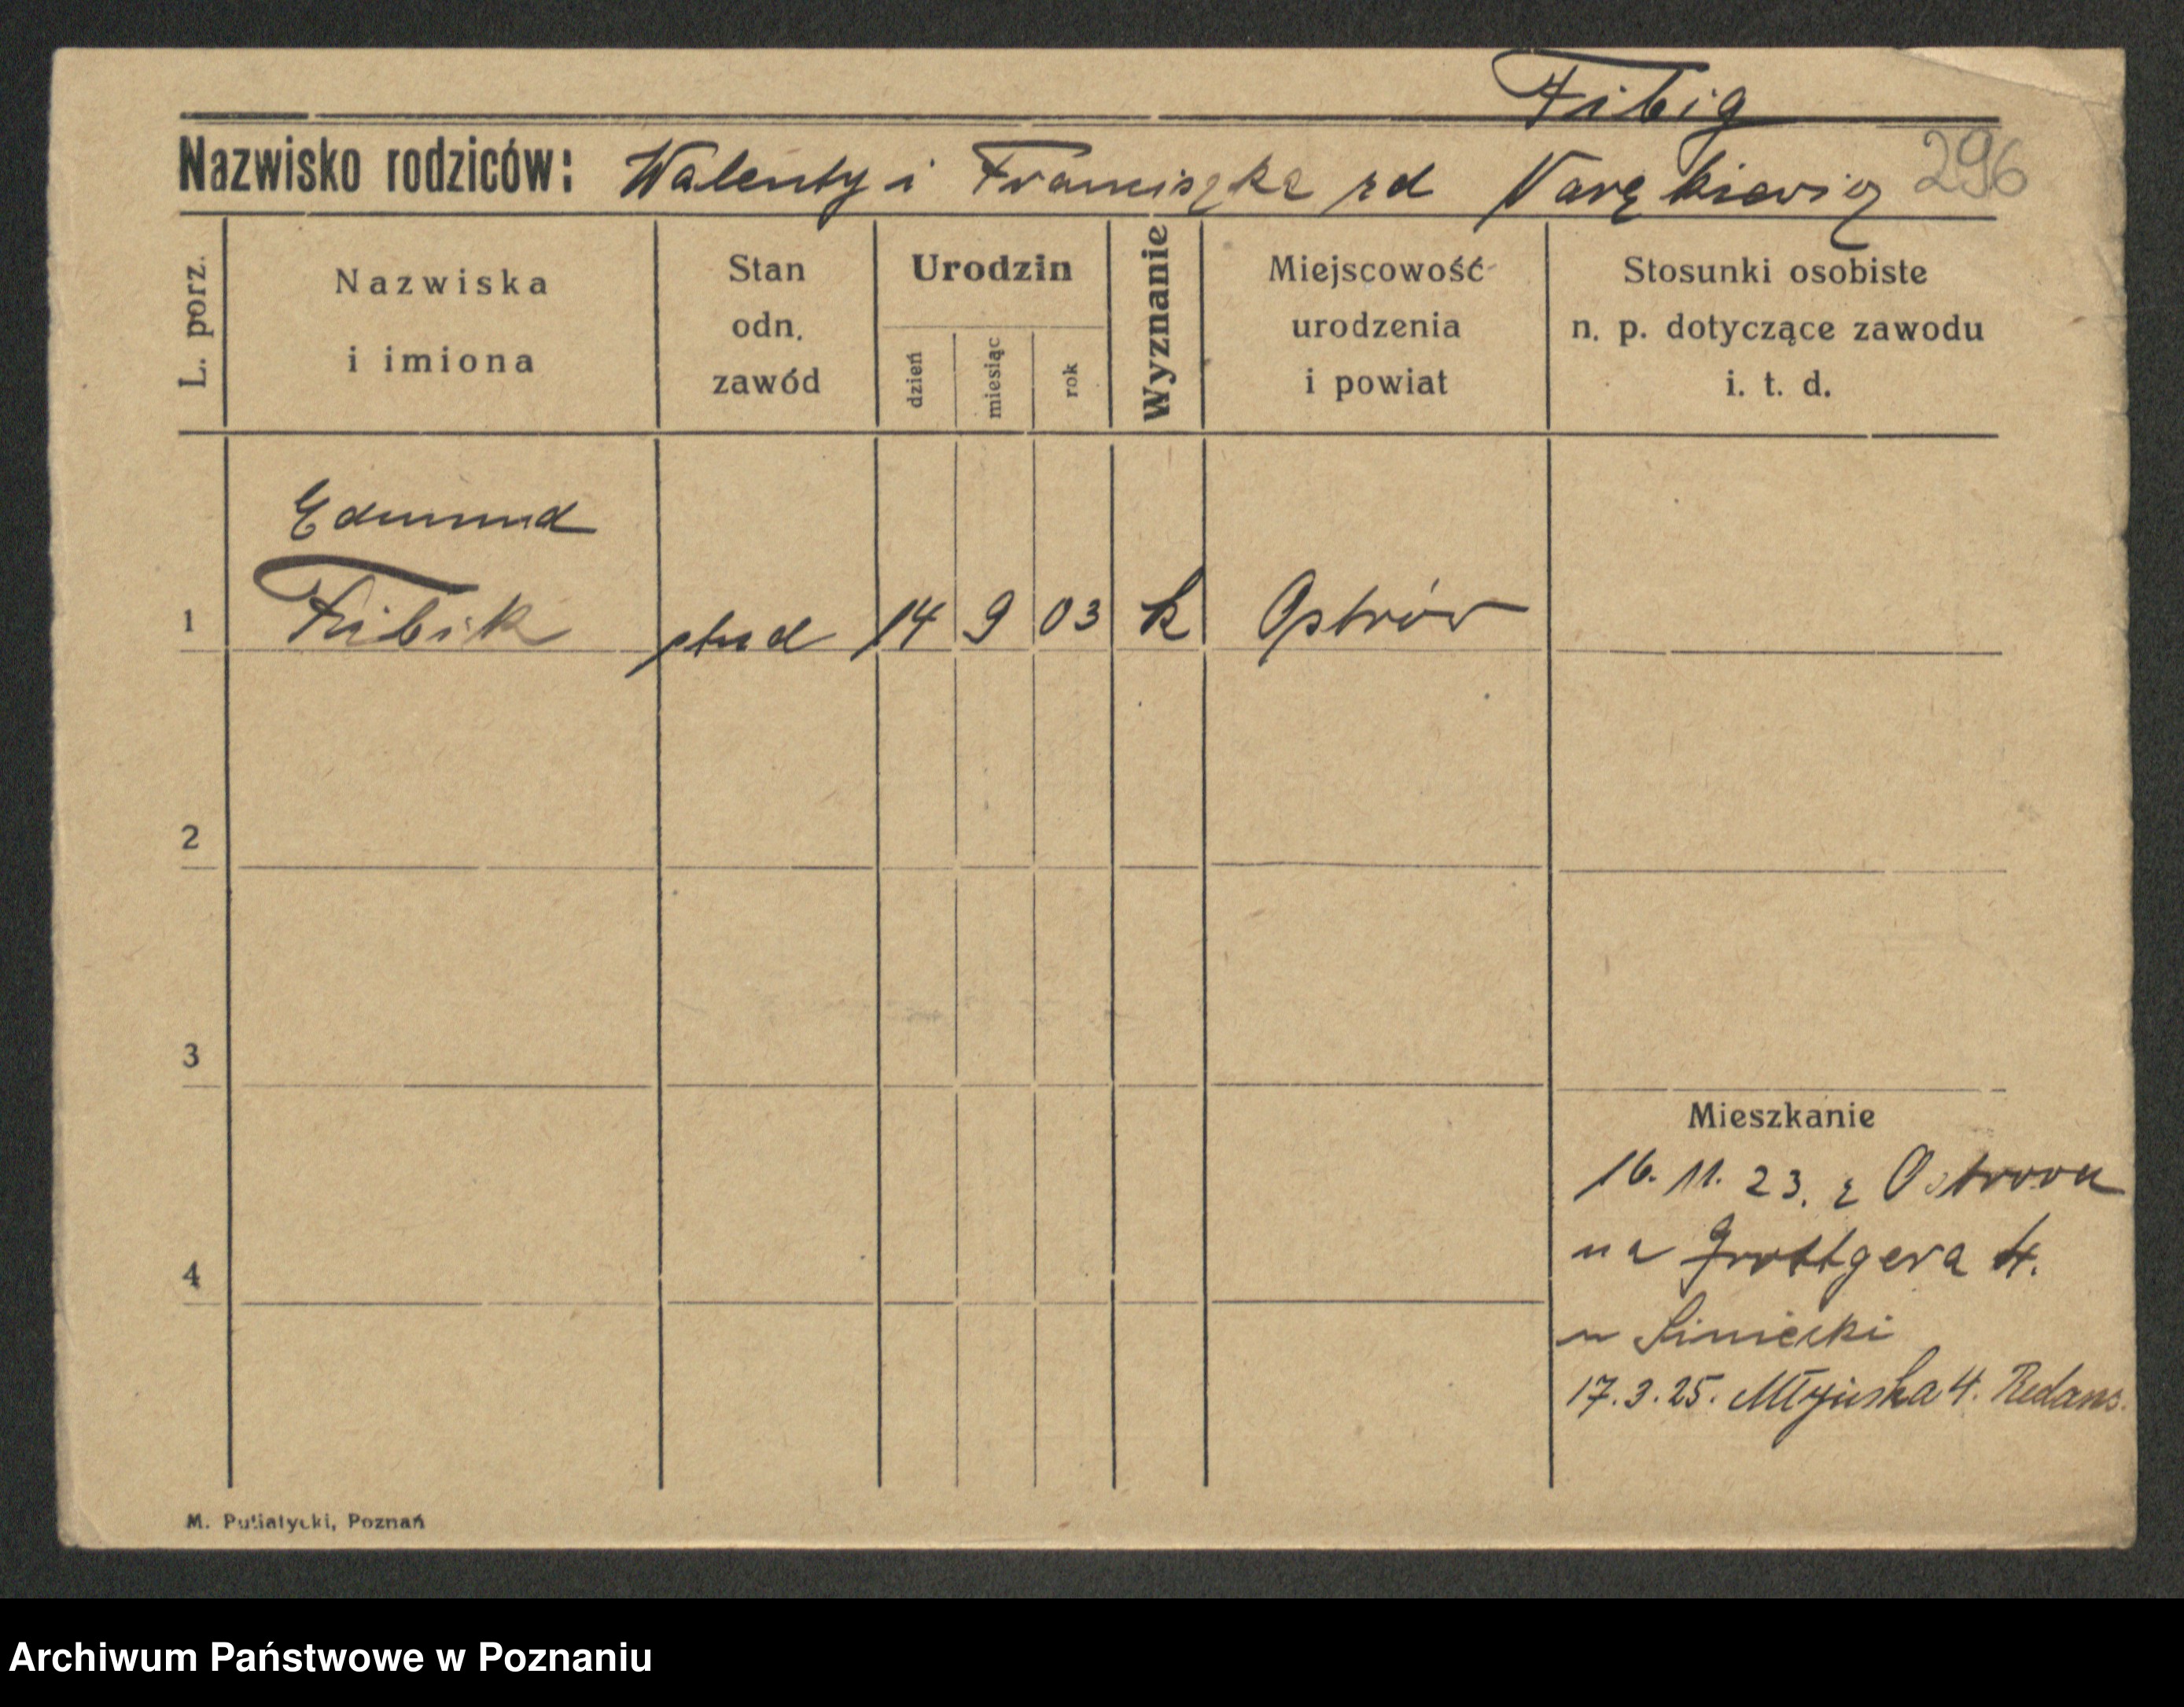 Fibig
Nazwisko rodziców: Walenty i Franciszka zd 296
L. porz.
Nazwiska
i imiona
Stan
odn.
zawód
Urodzin
dzień
miesiąc
rok
Wyznanie
Miejscowość
urodzenia
i powiat
Stosunki osobiste
n. p. dotyczące zawodu
i. t. d.
Edmund
1 Fibik stud 14 9 03 k Ostrów
2
3
Mieszkanie
16. 11. 23. z Ostrowa
na Grottgera 4.
4
u Simiecki
17. 3. 25. Młyńska 4.
M. Putiatycki, Poznań
Archiwum Państwowe w Poznaniu